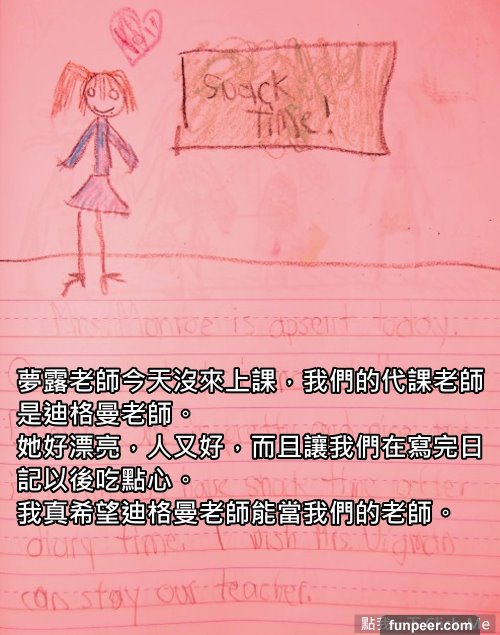 Snack
Time!
Mrs. Monroe is apsent today.
夢露老師今天沒來上課，我們的代課老師
是迪格曼老師。
她好漂亮，人又好，而且讓我們在寫完日
記以後吃點心。
我真希望迪格曼老師能當我們的老師。
snack time after
diary time. I wish Mrs. Digman
can stay our teacher.
點我
funpeer.com